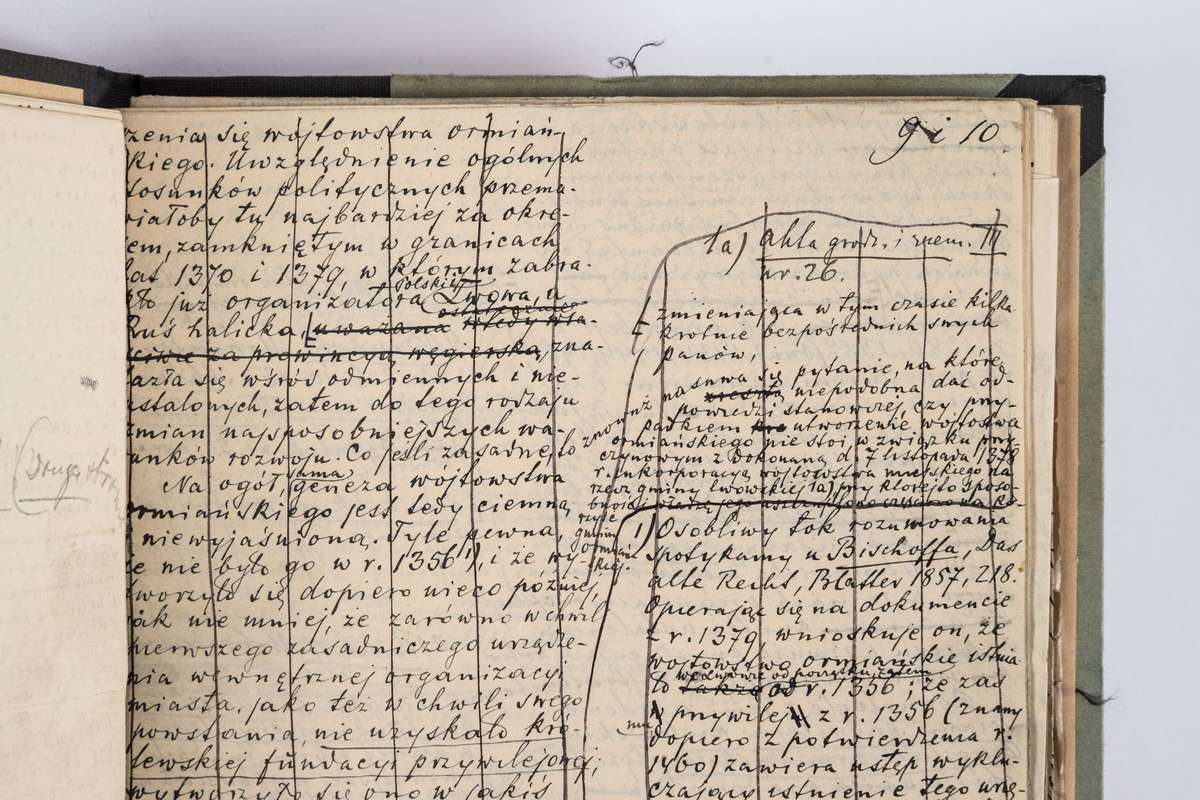 9 i 10
rzenia się wójtowstwa ormiań-
kiego. Uwzględnienie ogólnych
tosunków politycznych przema-
wiałoby tu najbardziej za okre-
em, zamkniętym w granicach
lat 1370 i 1379, w którym zabra-
kło już organizatora polskiej Lwowa, a
Ruś halicka, uważana wtedy
za prowincyą węgierską, zna-
lazła się wśród odmiennych i nie-
ustalonych, zatem do tego rodzaju
zmian najsposobniejszych wa-
unków rozwoju. Co jeśli zasadne, to
Na ogół, sama geneza wójtowstwa
ormiańskiego jest tedy ciemną
i niewyjaśnioną. Tyle pewna,
że nie było go w r. 1356 1), i że wy-
tworzyło się dopiero nieco później,
jak nie mniej, że zarówno w chwili
pierwszego zasadniczego urządze-
nia wewnętrznej organizacyi
miasta, jako też w chwili swego
powstania, nie uzyskało kró-
lewskiej fundacyi przywilejowej;
wytworzyło się ono w jakiś
1a) Akta grodz. i ziem. III
nr. 26.
zmieniająca w tym czasie kilka-
krotnie bezpośrednich swych
panów,
znowuż nasuwa się pytanie, na które
zresztą niepodobna dać od-
powiedzi stanowczej, czy przy-
padkiem utworzenie wójtowstwa
ormiańskiego nie stoi w związku przy-
czynowym z dokonaną d. 7 listopada 1378
r. inkorporacyą wójtowstwa miejskiego na
rzecz gminy lwowskiej, 1a) przy której to sposo-
bności
1) Osobliwy tok rozumowania
spotykamy u Bischoffa, Das
alte Recht, Blätter 1857, 218.
Opierając się na dokumencie
z r. 1379, wnioskuje on, że
wójtowstwo ormiańskie istnia-
ło także od r. 1356; że zaś
przywilej z r. 1356 (znany
dopiero z potwierdzenia r.
1460) zawiera ustęp wyklu-
czający istnienie tego urzę-
Druga